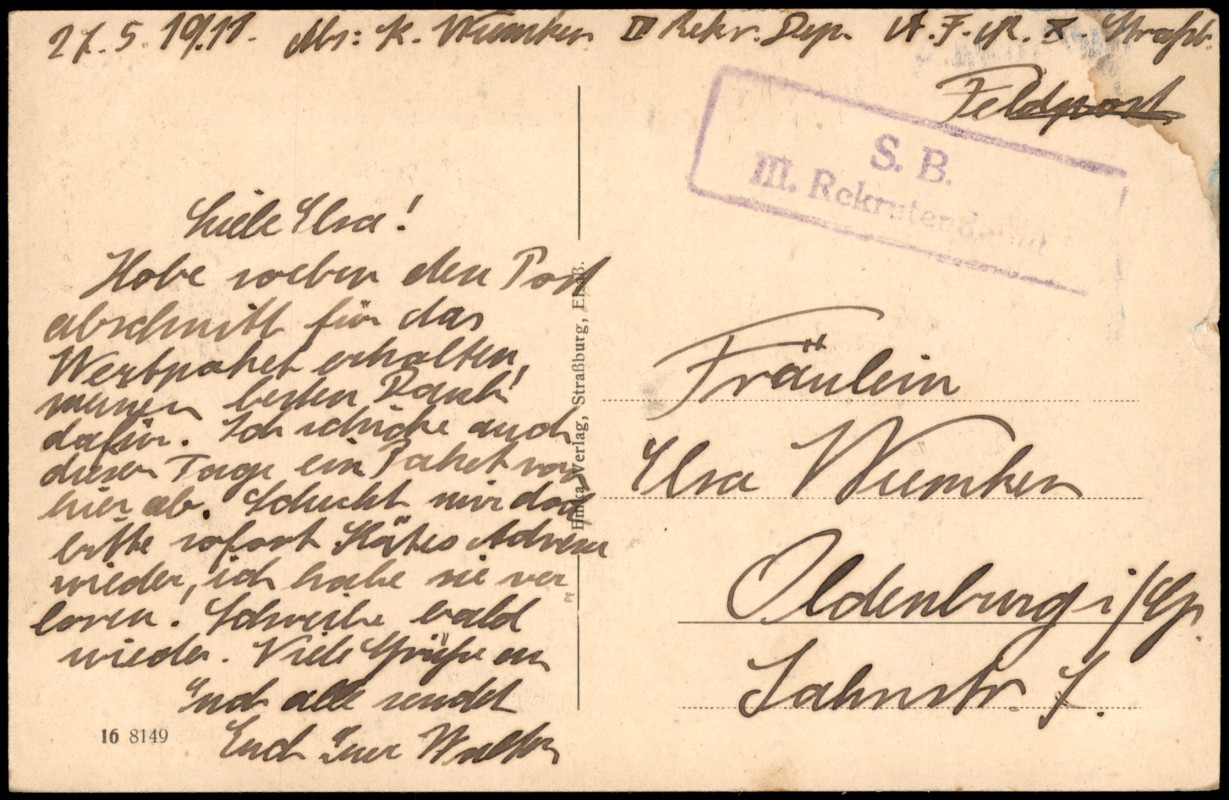 27.5.1918. Abs: K. Wiemken III Rekr. Dep. A.F.A.R. X. Straßb.
Feldpost
S. B.
III. Rekrutendepot
Liebe Elsa!
Habe soeben den Post
abschnitt für das
Wertpaket erhalten,
meinen besten Dank!
dafür. Ich schicke auch
dieser Tage ein Paket von
hier ab. Schickt mir doch
bitte sofort Kätes Adresse
wieder, ich habe sie ver
loren! Schreibe bald
wieder. Viele Grüße an
Euch alle sendet
Euch Euer Walter
16 8149
Verlag, Straßburg, Elsaß.
Fräulein
Elsa Wiemken
Oldenburg i/Gr.
Jahnstr. 7.